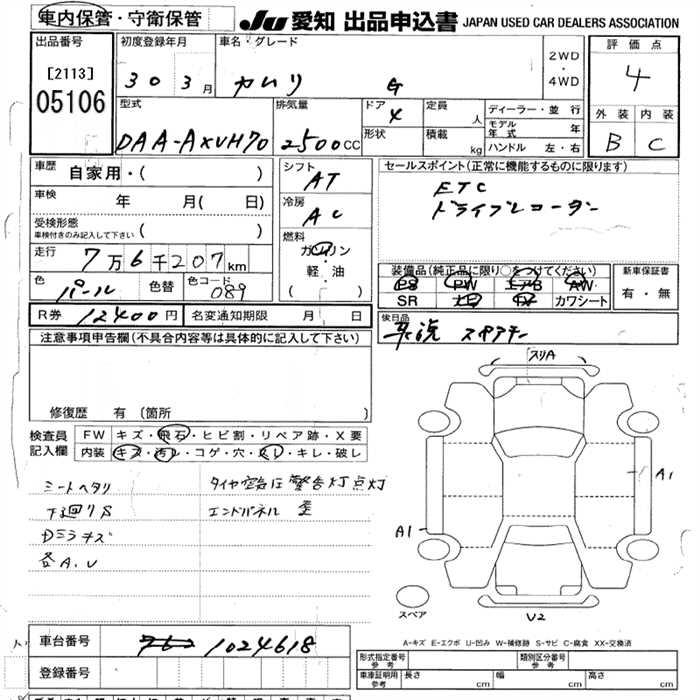 車内保管・守衛保管
JU 愛知 出品申込書 JAPAN USED CAR DEALERS ASSOCIATION
出品番号
[2113]
05106
初度登録年月
30 3月
車名・グレード
カムリ G
2WD
・
4WD
評価点
4
外装 内装
B C
型式
DAA-AXVH70
排気量
2500CC
ドア
4
形状
定員
人
積載
kg
ディーラー・並行
モデル年式 年
ハンドル 左・右
車歴
自家用・( )
車検
年 月( 日)
受検形態
車検付きのみ記入して下さい ( )
走行
7万6千207km
色
パール
色替
色コード
089
シフト
AT
冷房
AC
燃料
ガソリン
軽・油
( )
セールスポイント(正常に機能するものに限ります)
ETC
ドライブレコーダー
装備品(純正品に限り○をつけてください)
PS PW エアB AW
SR カワシート
新車保証書
有・無
R券 12400円
名変通知期限 月 日
後日品
取説 スペアキー
注意事項申告欄(不具合内容等は具体的に記入して下さい)
修復歴 有 〔箇所 〕
検査員
記入欄
FW キズ・飛石・ヒビ割・リペア跡・X要
内装 キズ・汚レ・コゲ・穴・スレ・キレ・破レ
シートヘタリ
下廻りS
Dミラキズ
各A.U
タイヤ空気圧警告灯点灯
エンドパネル歪
スリA
A1
A1
スペア
U2
A-キズ E-エクボ U-凹み W-補修跡 S-サビ C-腐食 XX-交換済
車台番号
1024618
登録番号
形式指定番号
参考
類別区分番号
参考
車庫証明用
参考
長さ cm
幅 cm
高さ cm